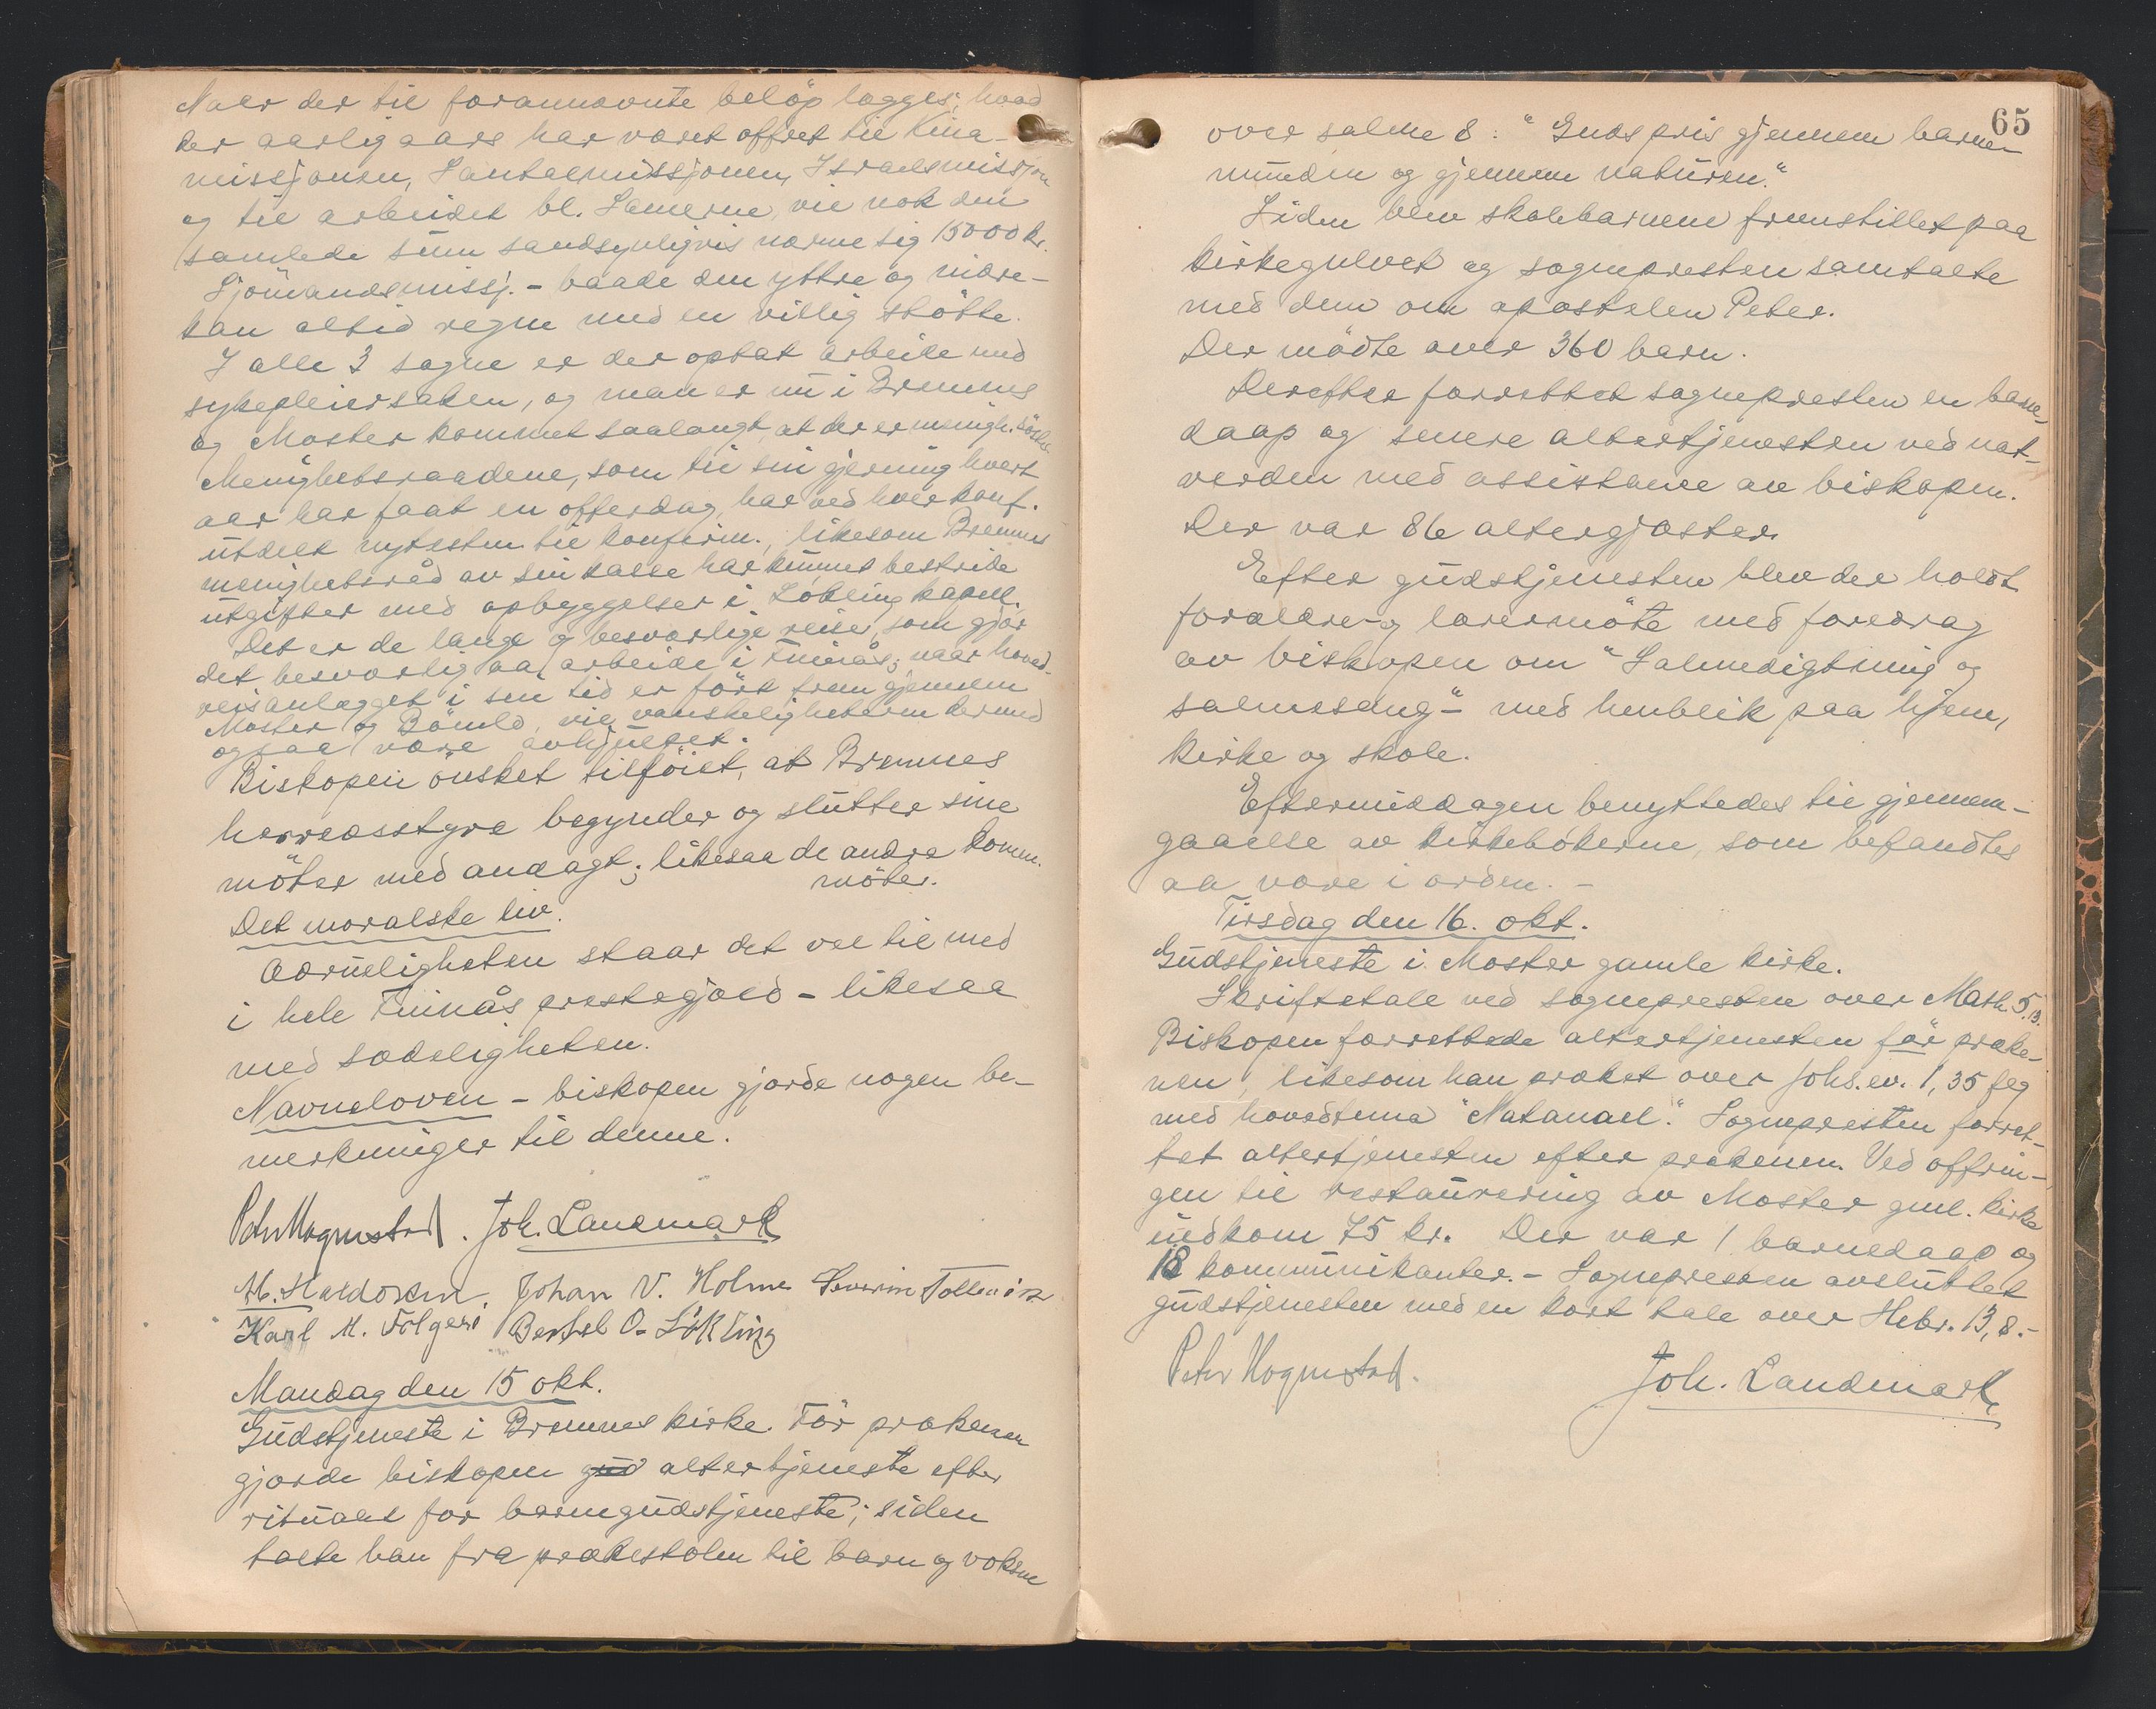 Naar der til forannævnte beløp lægges, hvad
der aarlig aars har været offret til Kina-
missjonen, Santalmissjonen, Israelsmissjon
og til arbeidet bl. Samerne, vil nok den
samlede sum sandsynligvis nærme sig 15000 kr.
Sjömandsmissj. - baade den yttre og indre -
kan altid regne med en villig stötte.
I alle 3 sogne er der optat arbeide med
sykepleiersaken, og man er nu i Bremnes
og Moster kommet saalangt, at der er menigh.söster.
Menighetsraadene, som til sin gjerning hvert
aar har faat en offerdag, har ved hver konf.
utdelt nytesten. til konfirm., likesom Bremnes
menighetsråd av sin kasse har kunnet bestride
utgifter med opbyggelser i Lökling kapell.
Det er de lange og besværlige reiser, som gjör
det besværlig aa arbeide i Finnås; naar hoved-
veisanlægget i sin tid er fört frem gjennem
Moster og Bömlo, vil vanskeligheterne dermed
ogsaa være avhjulpet.
Biskopen önsket tilföiet, at Bremnes
herredsstyre begynder og slutter sine
möter med andagt; likesaa de andre komm.
möter.
Det moralske liv.
Ædrueligheten staar det vel til med
i hele Finnås prestegjæld - likesaa
med sædeligheten.
Navneloven - biskopen gjorde nogen be-
merkninger til denne.
Peter Hognestad. Joh. Landmark
M. Haldorsen. Johan V. Holme Severin
Karl M. Folgerö Bertel O. Lökling
Mandag den 15 okt.
Gudstjeneste i Bremnes kirke. Før prækenen
gjorde biskopen gud altertjeneste efter
ritualet for barnegudstjeneste; siden
talte han fra prækestolen til barn og voksne
65
over salme 8: "Guds pris gjennem barne-
munden og gjennem naturen."
Siden blev skolebarnene fremstillet paa
kirkegulvet og sognepresten samtalte
med dem om apostelen Peter.
Der mödte over 360 barn.
Derefter forrettet sognepresten en barne-
daap og senere altertjenesten ved nat-
verden med assistance av biskopen.
Der var 86 altergjæster.
Efter gudstjenesten blev der holdt
forældre- og lærermöte med foredrag
av biskopen om "Salmedigtning og
salmesang" - med henblik paa hjem,
kirke og skole.
Eftermiddagen benyttedes til gjennem-
gaaelse av kirkebökerne, som befandtes
aa være i orden. -
Tirsdag den 16. okt.
Gudstjeneste i Moster gamle kirke.
Skriftetale ved sognepresten over Math. 5, 13.
Biskopen forrettede altertjenesten før præke-
nen, likesom han præket over Johs. ev. 1, 35 flg
med hovedtema "Natanael." Sognepresten forret-
tet altertjenesten efter prækenen. Ved offrin-
gen til restaurering av Moster gml. kirke
indkom 75 kr. Der var 1 barnedaap og
18 kommunikanter. - Sognepresten avsluttet
gudstjenesten med en kort tale over Hebr. 13, 8. -
Peter Hognestad. Joh. Landmark